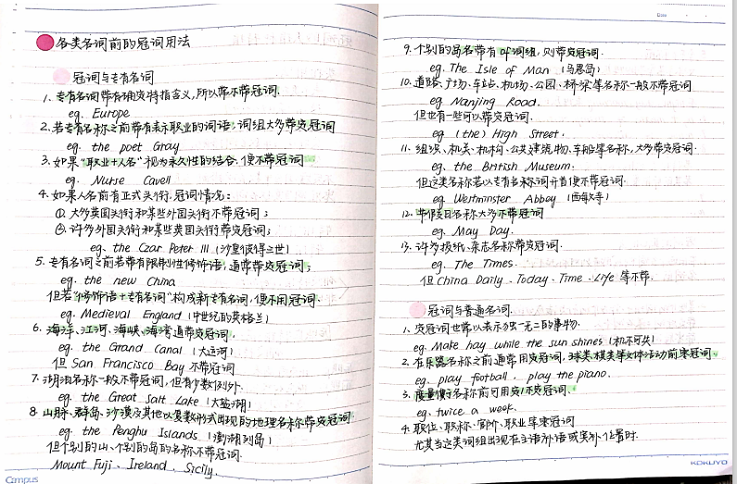 各类名词前的冠词用法
冠词与专有名词
1. 专有名词带有确定特指含义,所以常不带冠词.
eg. Europe
2. 若专有名称之前带有表示职业的词语、词组大多带定冠词
eg. the poet Gray
3. 如果"职业+人名"视为永久性的结合,便不带冠词
eg. Nurse Cavell
4. 如果人名前有正式头衔,冠词情况:
①. 大多英国头衔和某些外国头衔不带冠词;
②. 许多外国头衔和某些英国头衔带定冠词;
eg. the Czar Peter III (沙皇彼得三世)
5. 专有名词之前若带有限制性修饰语,通常带定冠词;
eg. the new China
但若"修饰语+专有名词"构成新专有名词,便不用冠词.
eg. Medieval England (中世纪的英格兰)
6. 海洋、江河、海峡、海湾通带定冠词.
eg. the Grand Canal (大运河)
但 San Francisco Bay 不带冠词
7. 湖泊名称一般不带冠词,但有少数例外.
eg. the Great Salt Lake (大盐湖)
8. 山脉、群岛、沙漠及其他以复数形式出现的地理名称带定冠词
eg. the Penghu Islands (澎湖列岛)
但个别的山、个别的岛的名称不带冠词.
Mount Fuji、Ireland、Sicily.
Campus
9. 个别的岛名带有 of 词组,则带定冠词.
eg. The Isle of Man (马恩岛)
10. 道路、广场、车站、机场、公园、桥梁等名称一般不带冠词
eg. Nanjing Road.
但也有一些可以带定冠词.
eg. (the) High Street.
11. 组织、机关、机构、公共建筑物、车船等名称,大多带定冠词.
eg. the British Museum.
但这类名称若以专有名称词开首便不带冠词.
eg. Westminster Abbey (西敏寺)
12. 节假日名称大多不带冠词
eg. May Day.
13. 许多报纸、杂志名称带定冠词.
eg. The Times.
但 China Daily、Today、Time、Life 等不带.
冠词与普通名词.
1. 定冠词也常以表示独一无二的事物.
eg. Make hay while the sun shines (机不可失)
2. 在乐器名称之前通常用定冠词,球类棋类等文体活动前零冠词.
eg. play football. play the piano.
3. 度量衡名称前可用定/不定冠词.
eg. twice a week.
4. 职位、职称、官阶、职业等零冠词
尤其当这类词组出现在主语补语或宾补位置时.
KOKUYO